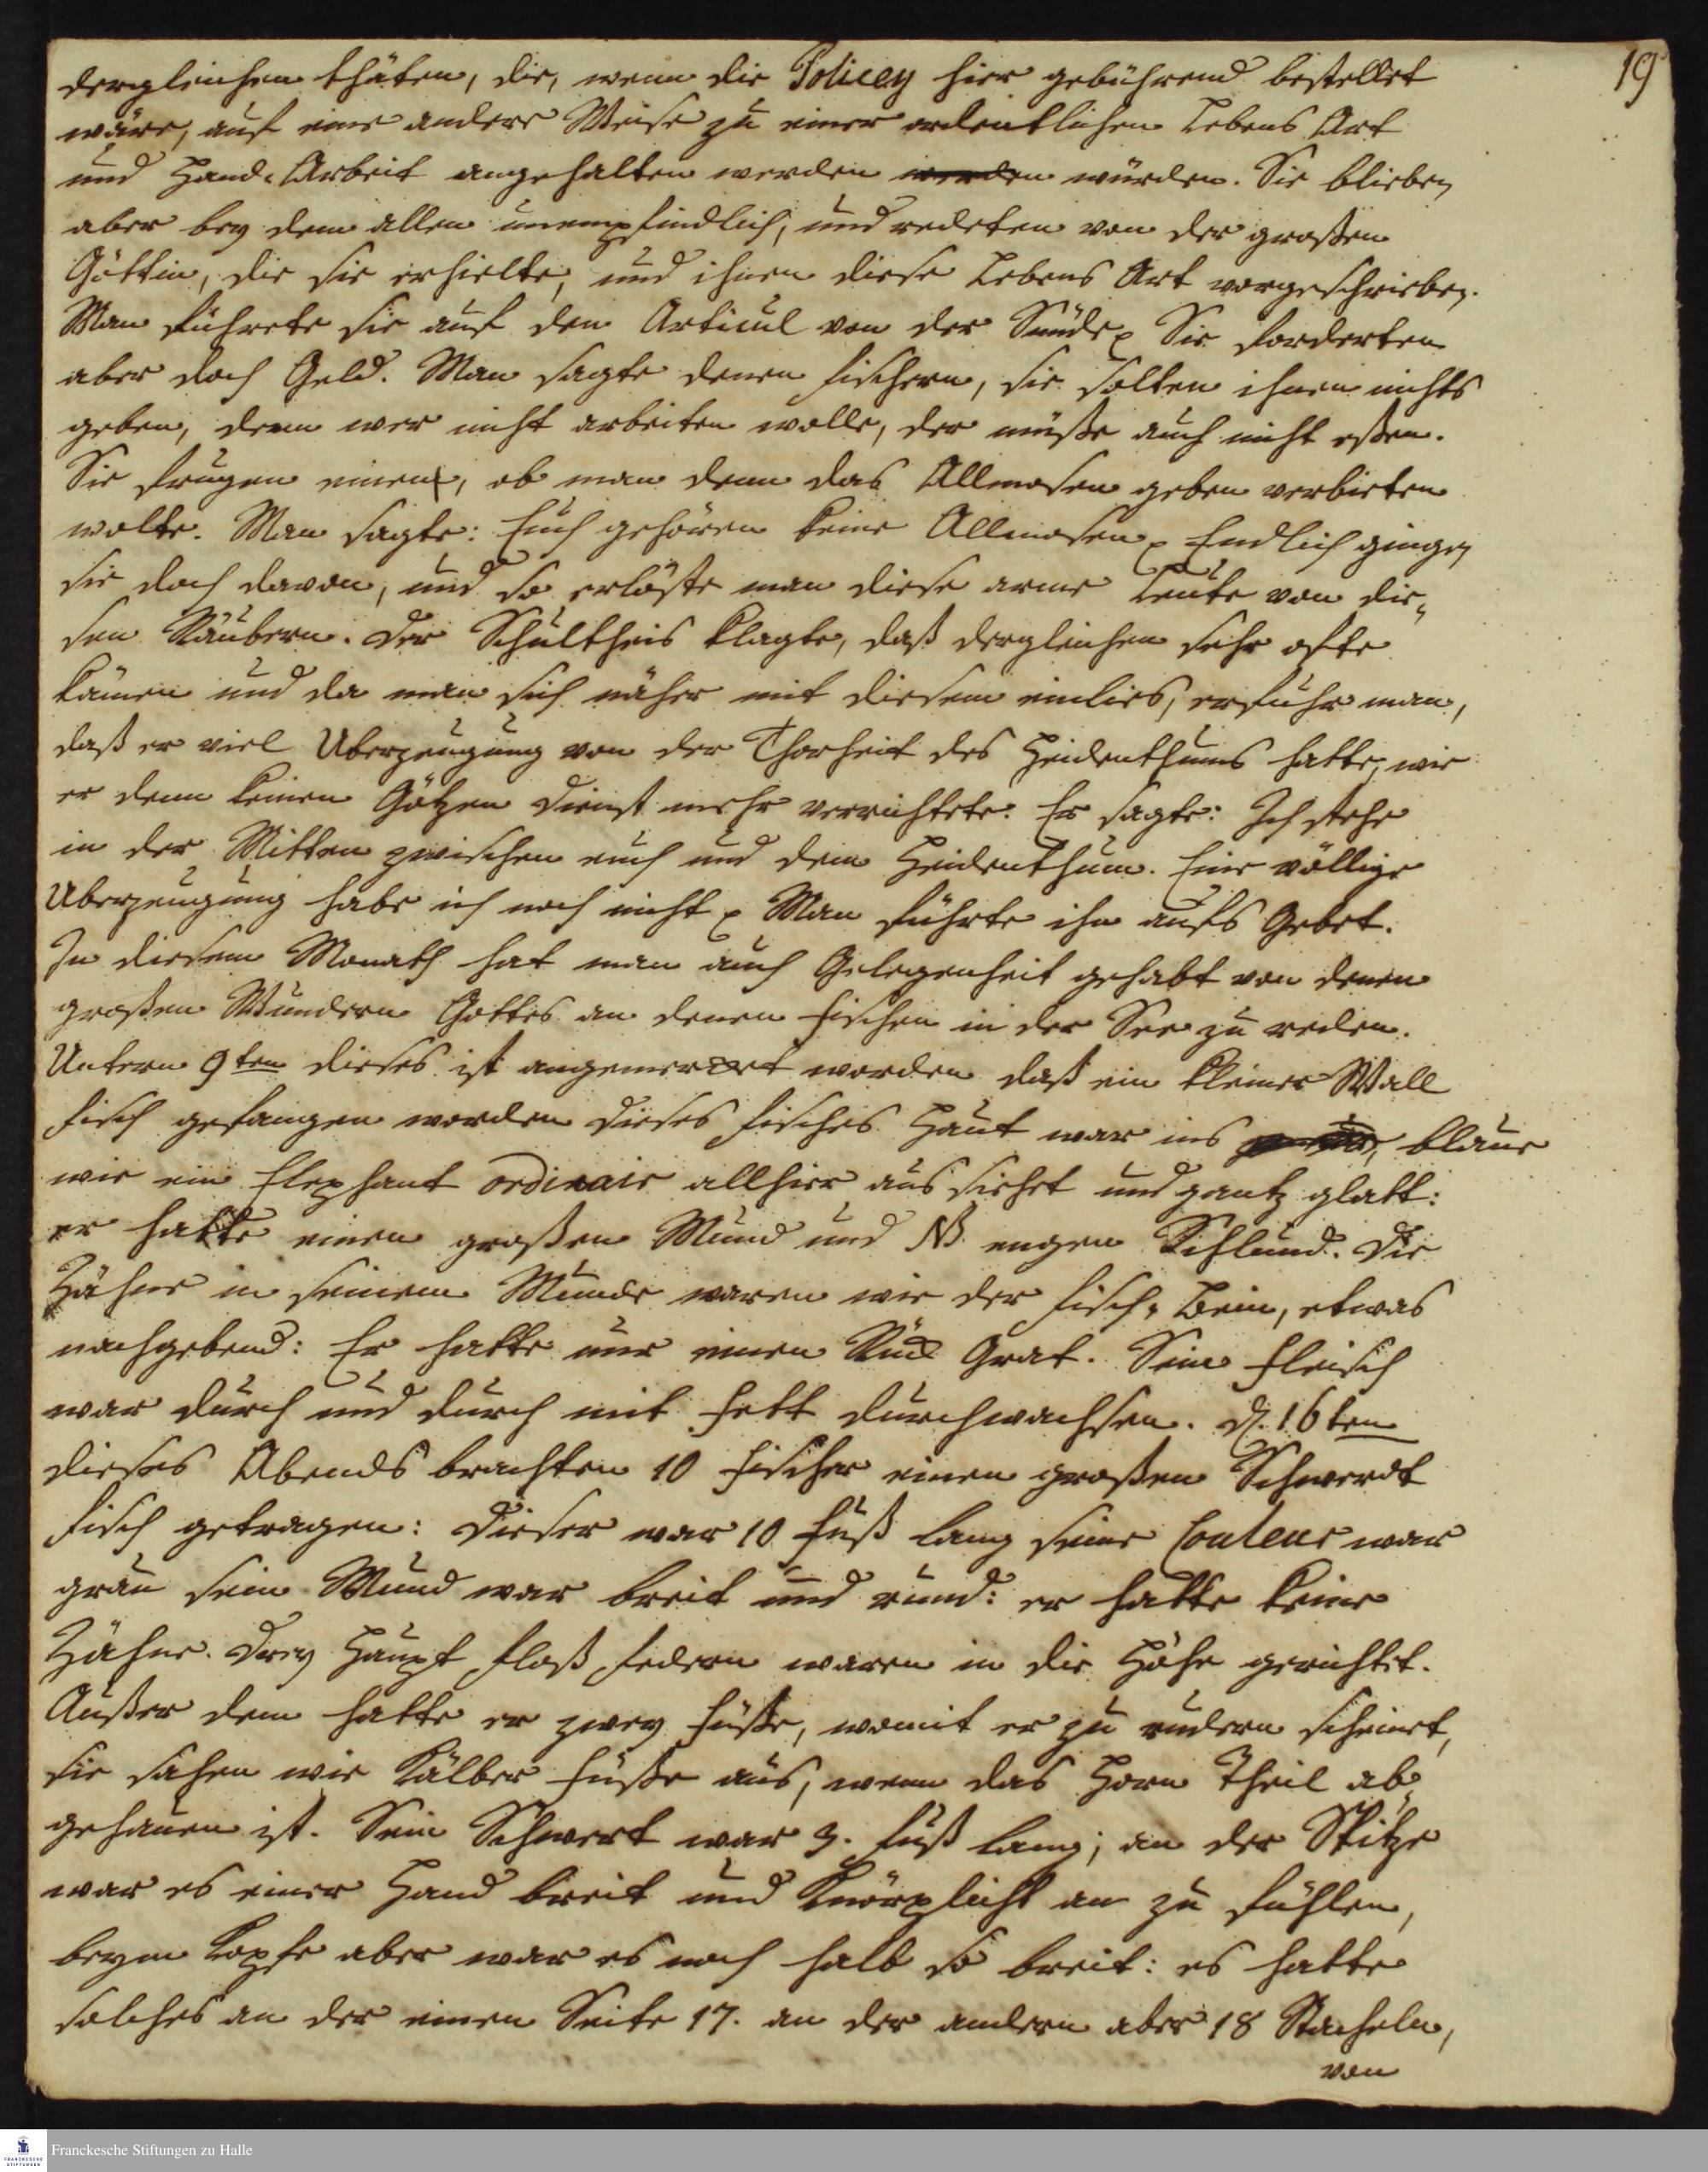 19
dergleichen thäten, die, wenn die Policey hier gebührend bestellet
wäre, auf eine andere Weise zu einer ordentlichen Lebens Art
und Hand-Arbeit angehalten werden werden würden. Sie blieben
aber bey dem allen unempfindlich, und redeten von der großen
Göttin, die sie erhielte, und ihnen diese Lebens Art vorgeschrieben.
Man führete sie auf den Articul von der Sünde. Sie forderten
aber doch Geld. Man sagte denen Fischern, sie solten ihnen nichts
geben, denn wer nicht arbeiten wolle, der müßte auch nicht eßen.
Sie frugen einen, ob man denn das Allmosen geben verbieten
wolte. Man sagte: Euch gehören keine Allmosen. Endlich gingen
sie doch davon, und so erlöste man diese arme Leute von die-
sen Räubern. Der Schultheis klagte, daß dergleichen sehr ofte
kämen und da man sich näher mit diesem einlies, erfuhr man,
daß er viel Uberzeugung von der Thorheit des Heidenthums hatte, wie
er denn keinen Götzen dienst mehr verrichtete. Er sagte: Ich stehe
in der Mitten zwischen euch und dem Heidenthum. Eine völlige
Uberzeugung habe ich noch nicht. Man führte ihn aufs Gebet.
In diesem Monath hat man auch Gelegenheit gehabt von denen
großen Wundern Gottes an denen Fischen in der See zu reden.
Untern 9ten dieses ist angemercket worden daß ein kleiner Wall
fisch gefangen worden dieses Fisches Haut war ins blaue
wie ein Elephant ordinair allhier aus siehet und gantz glatt:
er hatte einen großen Mund und NB engen Schlund. Die
Zähne in seinem Munde waren wie der Fisch-Bein, etwas
nachgebend: Er hatte nur einen Rück Grat. Sein Fleisch
war durch und durch mit Fett durchwachsen. d. 16ten
dieses Abends brachten 10 Fischer einen großen Schwerdt
fisch getragen: Dieser war 10 Fuß lang seine Couleur war
grau sein Mund war breit und rund: er hatte keine
Zähne. Drey Haupt floß federn waren in die Höhe gerichtet.
Außer dem hatte er zwey Füße, womit er zu rudern scheinet,
sie sahen wie Kälber Füße aus, wenn das Horn Theil ab-
gehauen ist. Sein Schwert war 3. Fuß lang; an der Spitze
war es einer Hand breit und knörplicht an zu fühlen,
beym Kopfe aber war es noch halb so breit: es hatte
solches an der einen Seite 17. an der andern aber 18 Stacheln,
von
Franckesche Stiftungen zu Halle
FRANCKESCHE
STIFTUNGEN